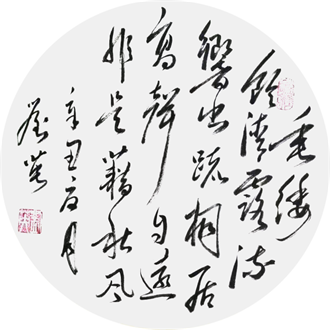 垂緌
飲清露流
響出疏桐居
高聲自遠
非是藉秋風
辛丑月